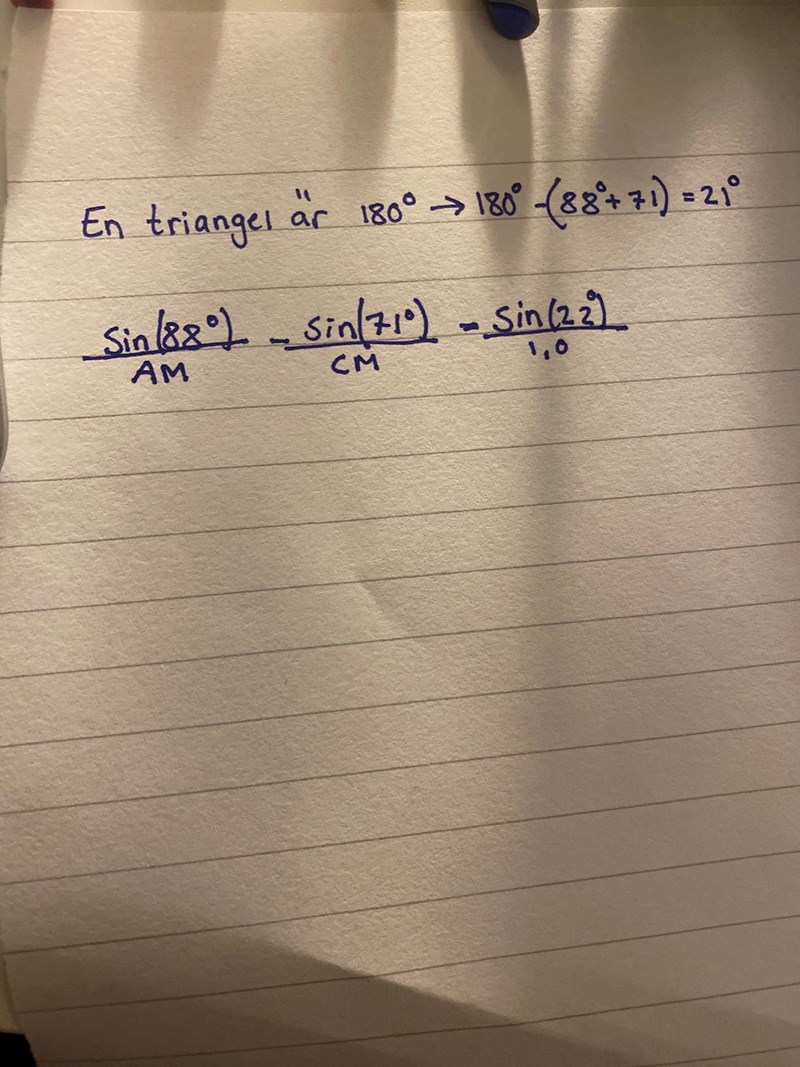 En triangel är 180° → 180° -(88°+71) = 21°
Sin(88°)/AM = Sin(71°)/CM = Sin(22°)/1,0